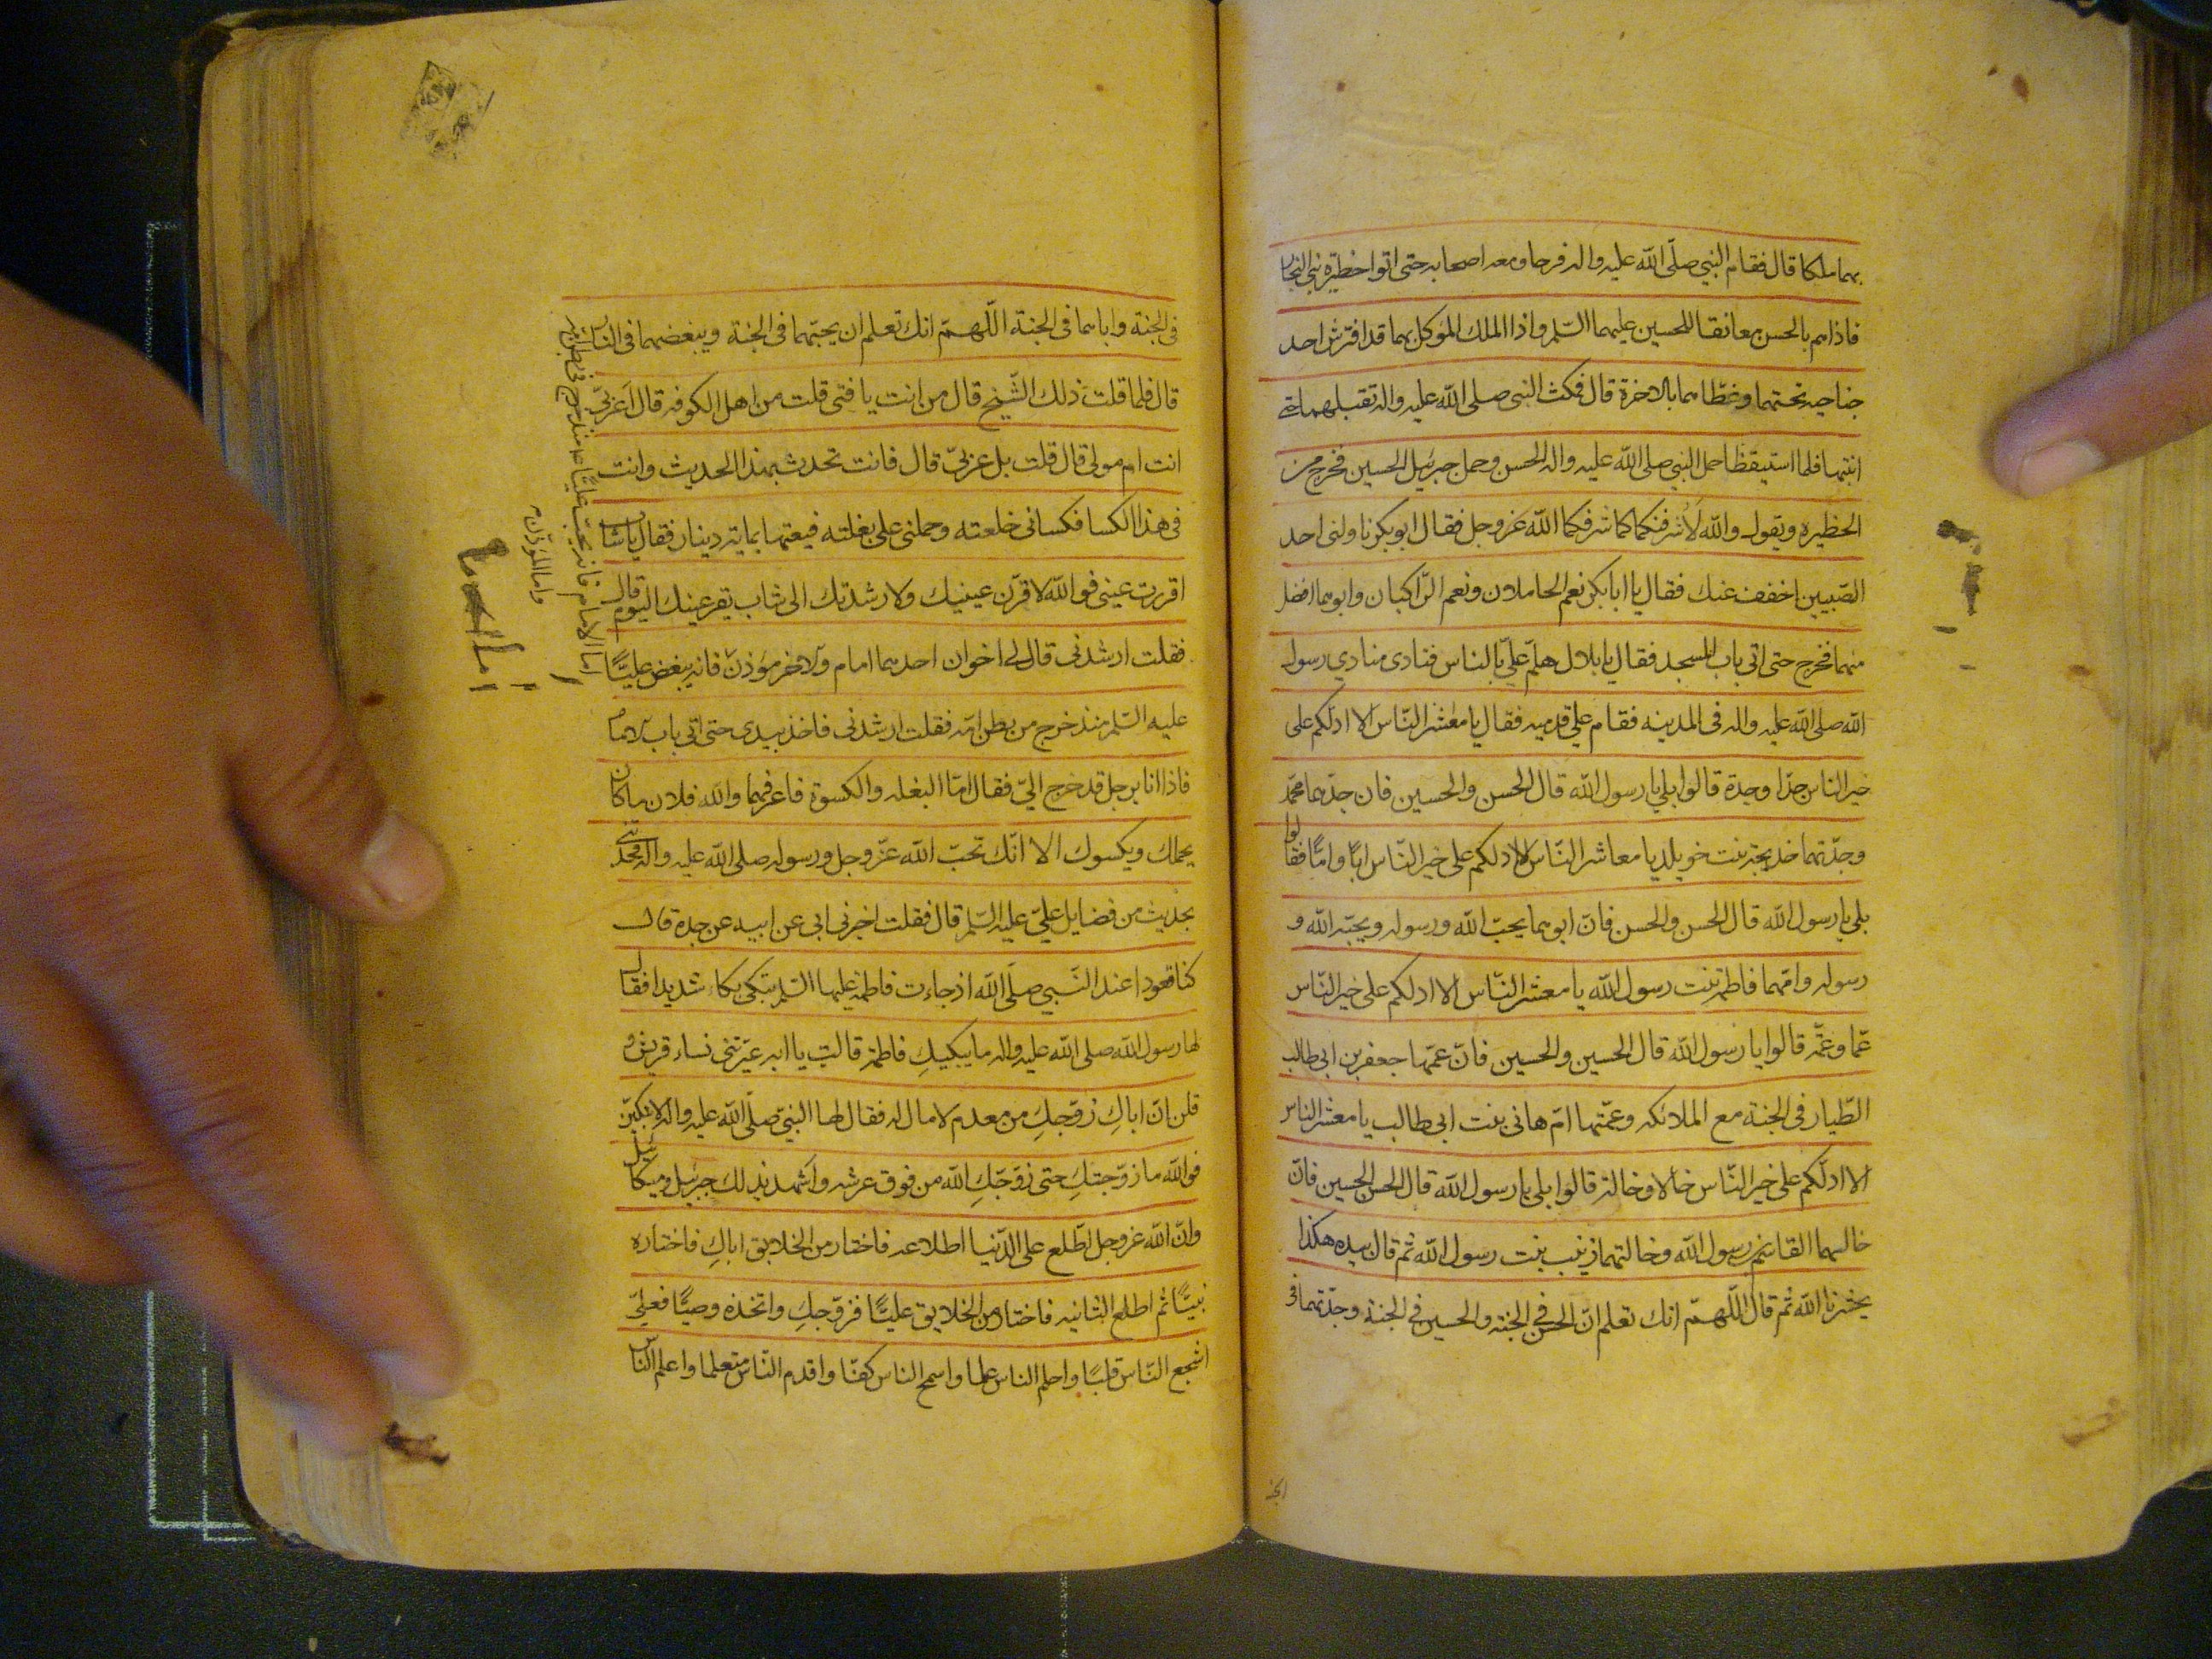 بهما ملكا قال فقام النبي صلّى الله عليه واله فرحا ومعه اصحابه حتى اتوا حظيرة بني النجار
فاذا هم بالحسن معانقا للحسين عليهما السّلم واذا الملك الموكل بهما قد افترش احد
جناحيه تحتهما وغطّاهما بالاخرة قال فمكث النبي صلى الله عليه واله تقبلهما حتى
انتبها فلما استيقظا حمل النبي صلى الله عليه واله الحسن وحمل جبرئيل الحسين فخرج من
الحظيره ويقول والله لأشرفنكما كما شرفكما الله عز وجل فقال ابو بكر ناولنى احد
الصّبيين اخفف عنك فقال يا ابا بكر نعم الحاملان ونعم الرّاكبان وابوهما افضل
منهما فخرج حتى اتى باب المسجد فقال يا بلال هلمّ علىّ بالناس فنادى منادى رسول
الله صلى الله عليه واله فى المدينه فقام على قدميه فقال يا معشر النّاس الا ادلّكم على
خير الناس جدّا وجدة قالوا بلى يا رسول الله قال الحسن والحسين فان جدّهما محمّد
وجدّتهما خديجة بنت خويلد يا معاشر النّاس الا ادلكم على خير النّاس ابًا وامًّا فقالوا
بلى يا رسول الله قال الحسن والحسن فانّ ابوهما يحبّ الله ورسوله ويحبّه الله و
رسوله وامّهما فاطمة بنت رسول الله يا معشر النّاس الا ادلكم على خير النّاس
عمّا وعمّة قالوا يا رسول الله قال الحسين والحسين فانّ عمّهما جعفر بن ابى طالب
الطّيار فى الجنة مع الملائكه وعمّتهما امّ هانى بنت ابى طالب يا معشر الناس
الا ادلّكم على خير النّاس خالا وخالة قالوا بلى يا رسول الله قال الحسن الحسين فانّ
خالهما القاسم بن رسول الله وخالتهما زينب بنت رسول الله ثم قال بيده هكذا
يحشرنا الله ثم قال اللّهمّ انك تعلم انّ الحسن فى الجنته والحسين فى الجنة وجدّتهما فى
فى الجنة واباهما فى الجنة اللّهمّ انك تعلم ان يحبّهما فى الجنة ويبغضهما فى النار
قال فلما قلت ذلك الشّيخ قال من انت يا فتى قلت من اهل الكوفه قال أعربىّ
انت ام مولى قال قلت بل عربىّ قال فانت تحدث بهذا الحديث وانت
فى هذا الكسا فكسانى خلعته وحملنى على بغلته فبعتها بماية دينار فقال يا شاب
اقررت عينى فو الله لاقرّن عينيك ولارشدتك الى شاب يقر عينك اليوم قال
فقلت ارشدنى قال لى اخوان احدهما امام والاخر مؤذن فانه يبغض عليًّا
عليه السّلم منذ خرج من بطن امّه فقلت ارشدنى فاخذ بيدى حتى اتى باب الامام
فاذا انا برجل قد خرج الىّ فقال امّا البغله والكسوة فاعرفهما والله فلان ما كان
يحملك ويكسوك الا انّك تحبّ الله عزّ وجل ورسوله صلى الله عليه واله فحدثنى
بحديث من فضايل علىّ عليه السّلم قال فقلت اخبرنى ابى عن ابيه عن جده قال
كنا قعودا عند النّبي صلّى الله اذ جاءت فاطمة عليها السّلم تبكى بكاء شديدا فقال
لها رسول الله صلى الله عليه واله ما يبكيكِ فاطمة قالت يا ابه عيّرتنى نساء قريش و
قلن انّ اباكِ زوّجكِ من معدم لا مال له فقال لها النبيّ صلّى الله عليه واله لا تبكينّ
فوالله ما زوّجتكِ حتى زوّجكِ الله من فوق عرشه واشهد بذلك جبرئيل وميكائيل
وانّ الله عز وجل اطّلع على الدّنيا اطلاعه فاختار من الخلايق اباكِ فاختاره
نبيًّا ثم اطلع الثانيه فاختار من الخلايق عليًّا فزوّجكِ واتخذه وصيًّا فعلىّ
اشجع النّاس قلبًا واحلم الناس علما واسمح الناس كفّا واقدم النّاس متعلما واعلم النّاس
اما الامام فانه يحبّ عليًّا منذ خرج فى بطن امّه
واما المؤذن